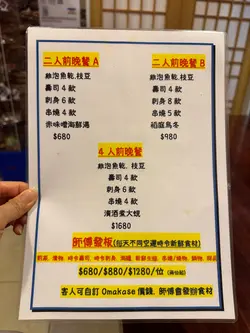 二人前晚餐 A
雞泡魚乾, 枝豆
壽司 4 款
刺身 6 款
串燒 4 款
赤味噌海鮮湯
$680
二人前晚餐 B
雞泡魚乾, 枝豆
壽司 4 款
刺身 8 款
串燒 5 款
稻庭烏冬
$980
4 人前晚餐
雞泡魚乾, 枝豆
壽司 4 款
刺身 8 款
串燒 4 款
清酒煮大蜆
$1680
師傅發板(每天不同空運時令新鮮食材)
$680/$880/$1280/位
客人可自訂 Omakase 價錢, 師傅會發辦食材